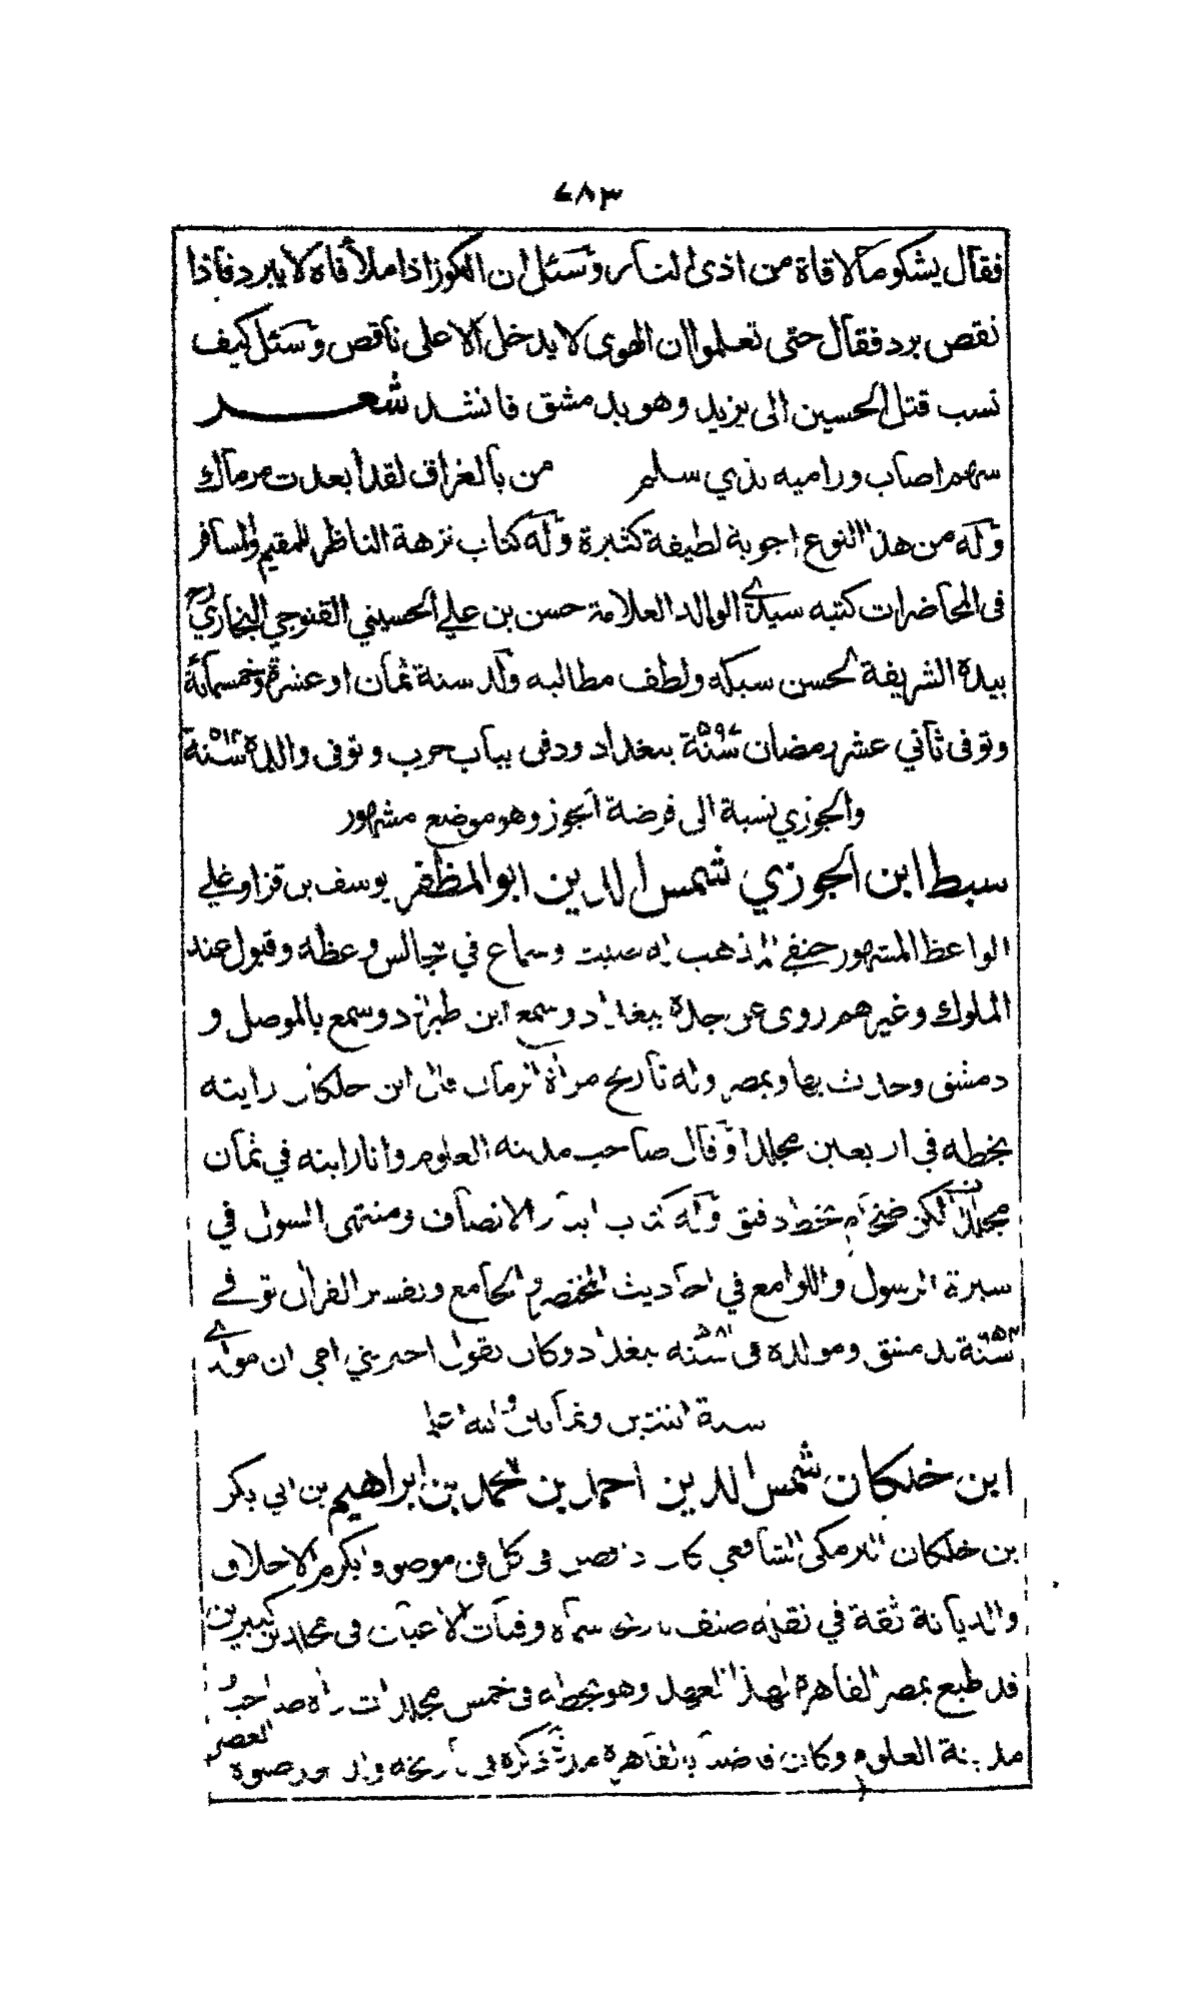 ٧٨٣
فقال يشكو ما لاقاه من اذى النار وسئل ان الكوز اذا ملأ فاه لا يبرد فاذا
نقص برد فقال حتى تعلموا ان الهوى لا يدخل الا على ناقص وسئل كيف
نسب قتل الحسين الى يزيد وهو بدمشق فانشد شعر
سهم اصاب وراميه بذي سلم من بالعراق لقد أبعدت مرماك
وله من هذا النوع اجوبة لطيفة كثيرة وله كتاب نزهة الناظر للمقيم والمسافر
فى المحاضرات كتبه سيدي الوالد العلامة حسن بن علي الحسيني القنوجي البخاري رح
بيده الشريفة لحسن سبكه ولطف مطالبه ولد سنة ثمان او عشرة وخمسمائة
وتوفى ثاني عشر رمضان سنة ٥٩٧ ببغداد ودفن بباب حرب وتوفى والده سنة ٥١٤
والجوزي نسبة الى فرضة الجوز وهو موضع مشهور
سبط ابن الجوزي شمس الدين ابو المظفر يوسف بن قزاوغلي
الواعظ المشهور حنفي المذهب له صيت وسماع في مجالس وعظه وقبول عند
الملوك وغيرهم روى عن جده ببغداد وسمع ابن طبرزد وسمع بالموصل و
دمشق وحدث بها وبمصر وله تاريخ مرآة الزمان قال ابن خلكان رايته
بخطه في اربعين مجلدا وقال صاحب مدينة العلوم وانا رايته في ثمان
مجلدات لكن ضخام بخط دقيق وله كتاب ايثار الانصاف ومنتهى السول في
سيرة الرسول واللوامع في احاديث المختصر والجامع وتفسير القرآن توفي
سنة ٦٥٤ بدمشق ومولده فى سنة ٥٨١ ببغداد وكان يقول اخبرتني امي ان مولدي
سنة اثنتين وثمانين والله اعلم
ابن خلكان شمس الدين احمد بن محمد بن ابراهيم بن ابي بكر
بن خلكان البرمكي الشافعي كان ذا فضل فى كل فن موصوفا بكرم الاخلاق
والديانة ثقة في نقله صنف تاريخا سماه وفيات الاعيان فى مجلدين كبيرين
قد طبع بمصر القاهرة لهذا العهد وهو بخطه فى خمس مجلدات رآه صاحب
مدينة العلوم وكان قاضيا بالقاهرة مدة ذكره فى تاريخه العصر